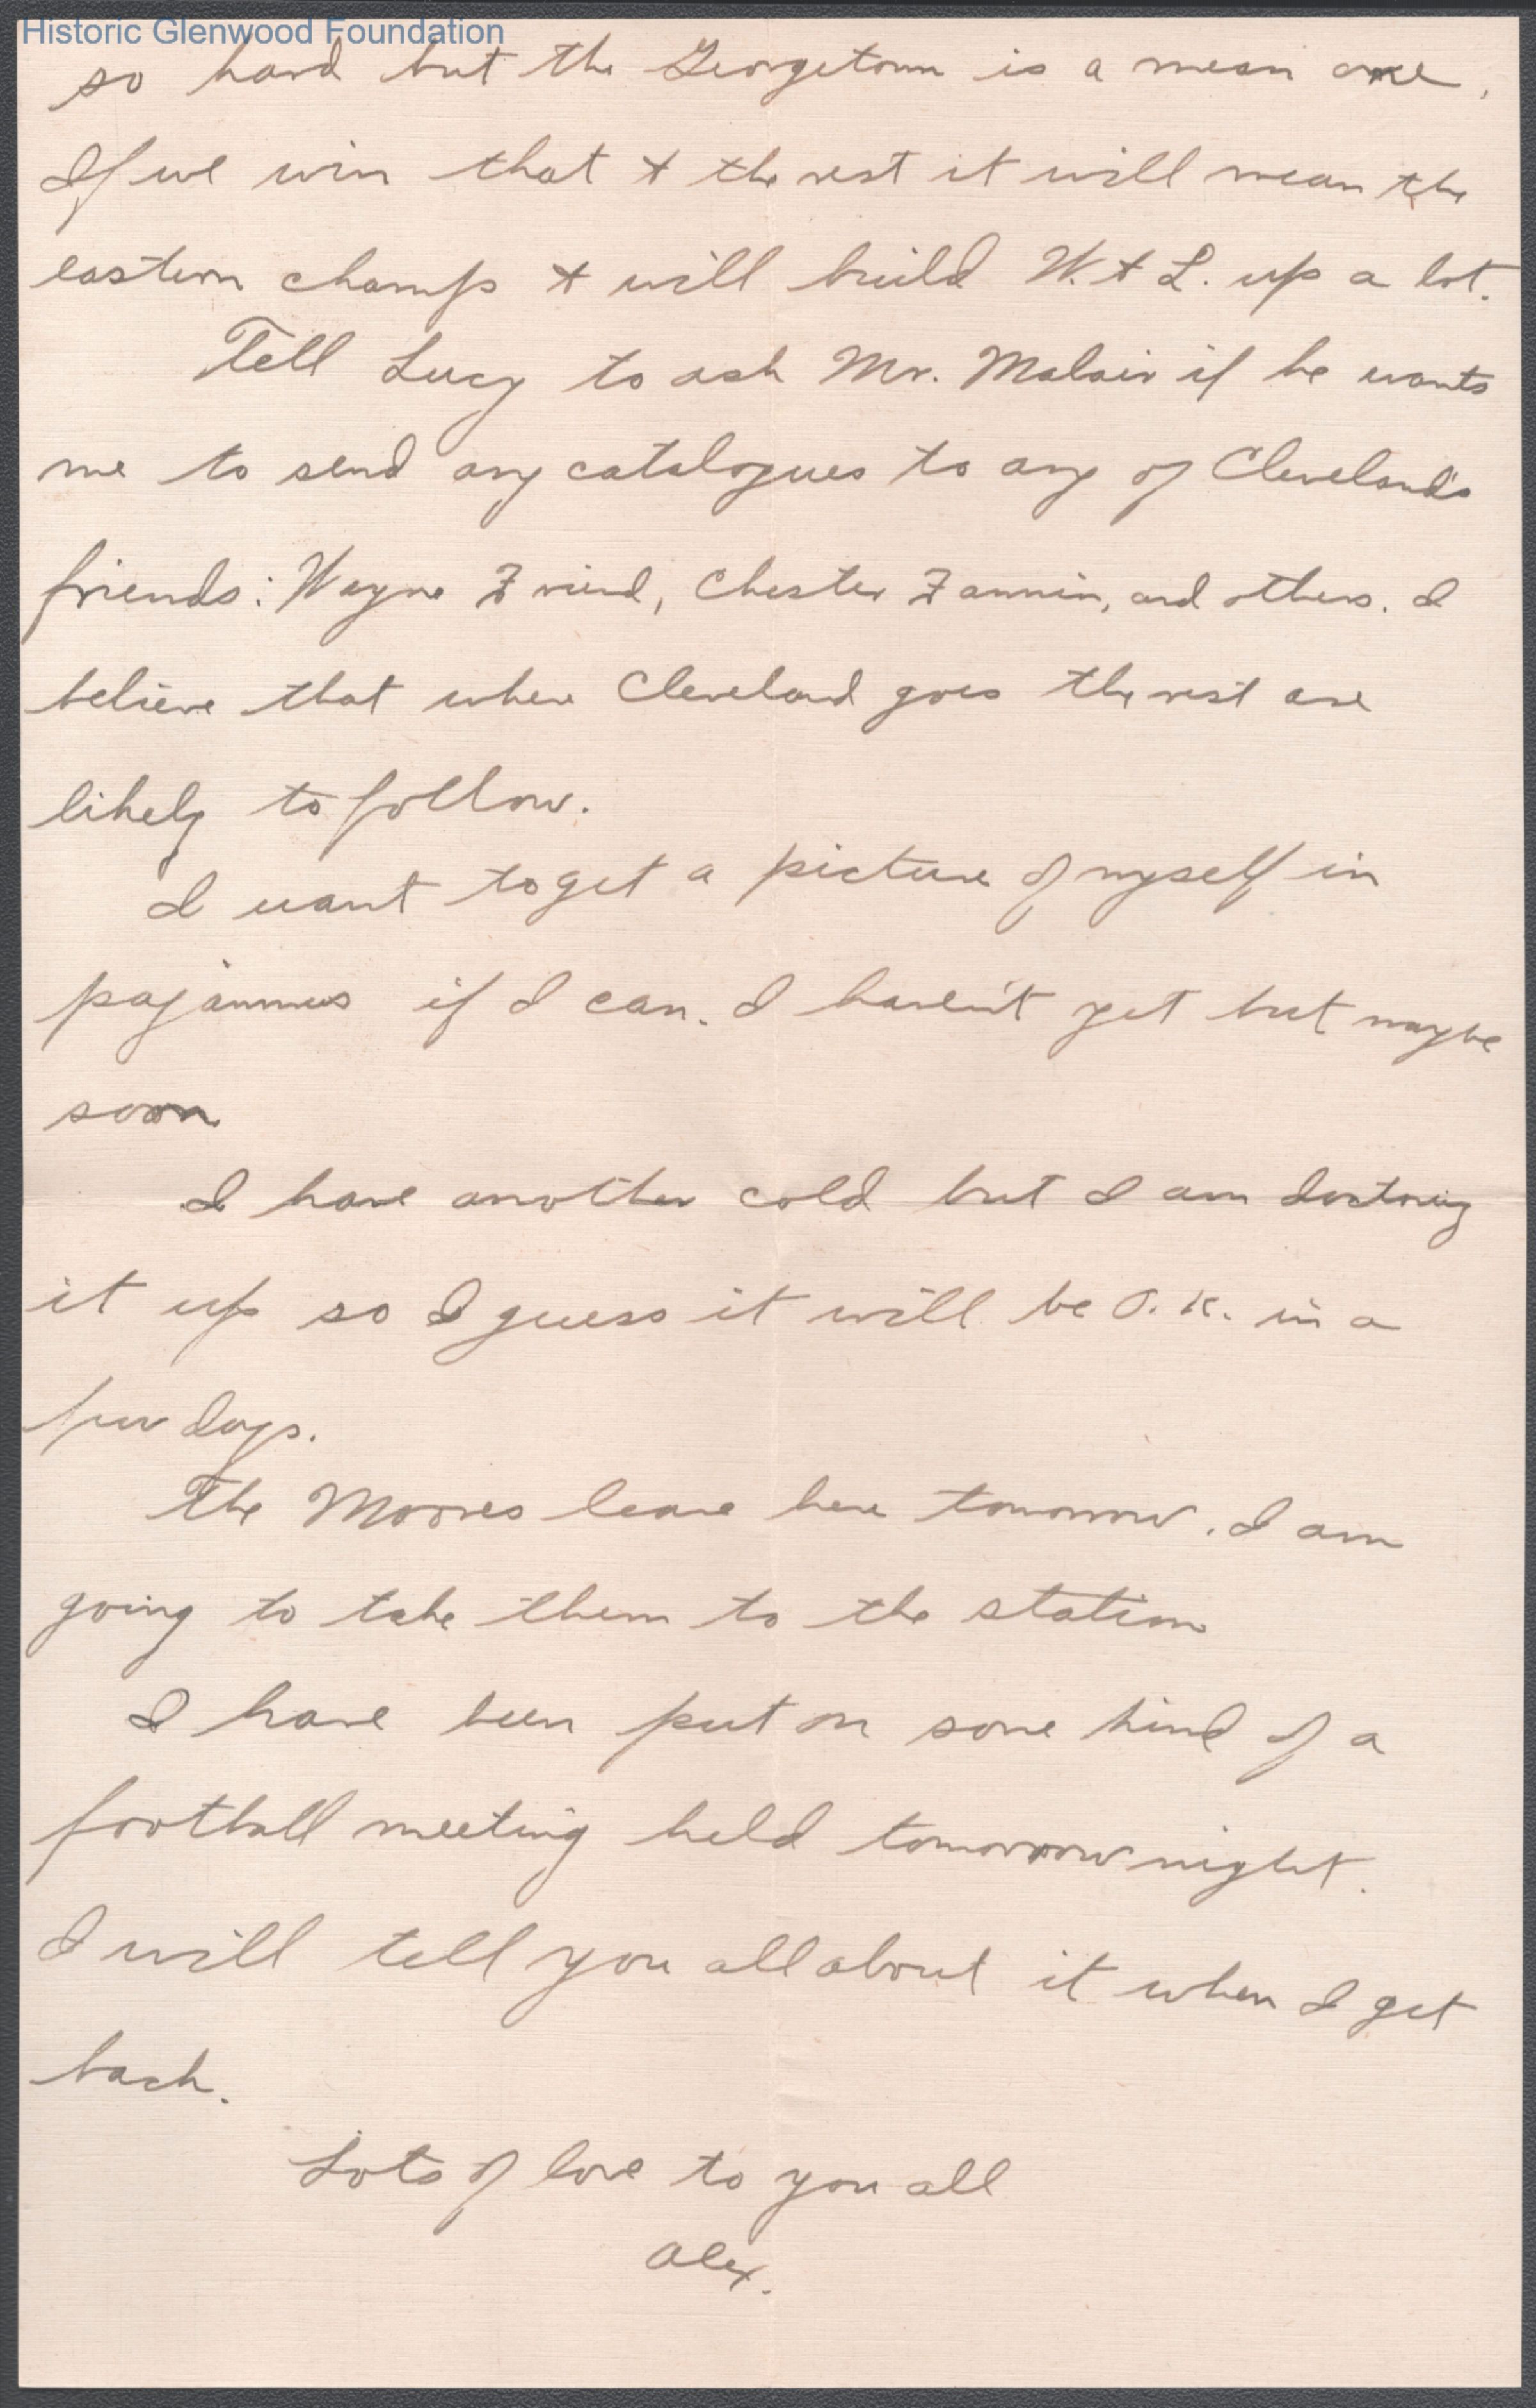 Historic Glenwood Foundation
so hard but the Georgetown is a mean one.
If we win that + the rest it will mean the
eastern champs + will build W. + L. up a lot.
Tell Lucy to ask Mr. Malair if he wants
me to send any catalogues to any of Cleveland's
friends: Wayne Friend, Chester Fannin, and others. I
believe that where Cleveland goes the rest are
likely to follow.
I want to get a picture of myself in
pajammus if I can. I haven't yet but maybe
soon
I have another cold but I am doctoring
it up so I guess it will be O.K. in a
few days.
The Moores leave here tomorrow. I am
going to take them to the station
I have been put on some kind of a
football meeting held tomorrow night.
I will tell you all about it when I get
back.
Lots of love to you all
Alex.